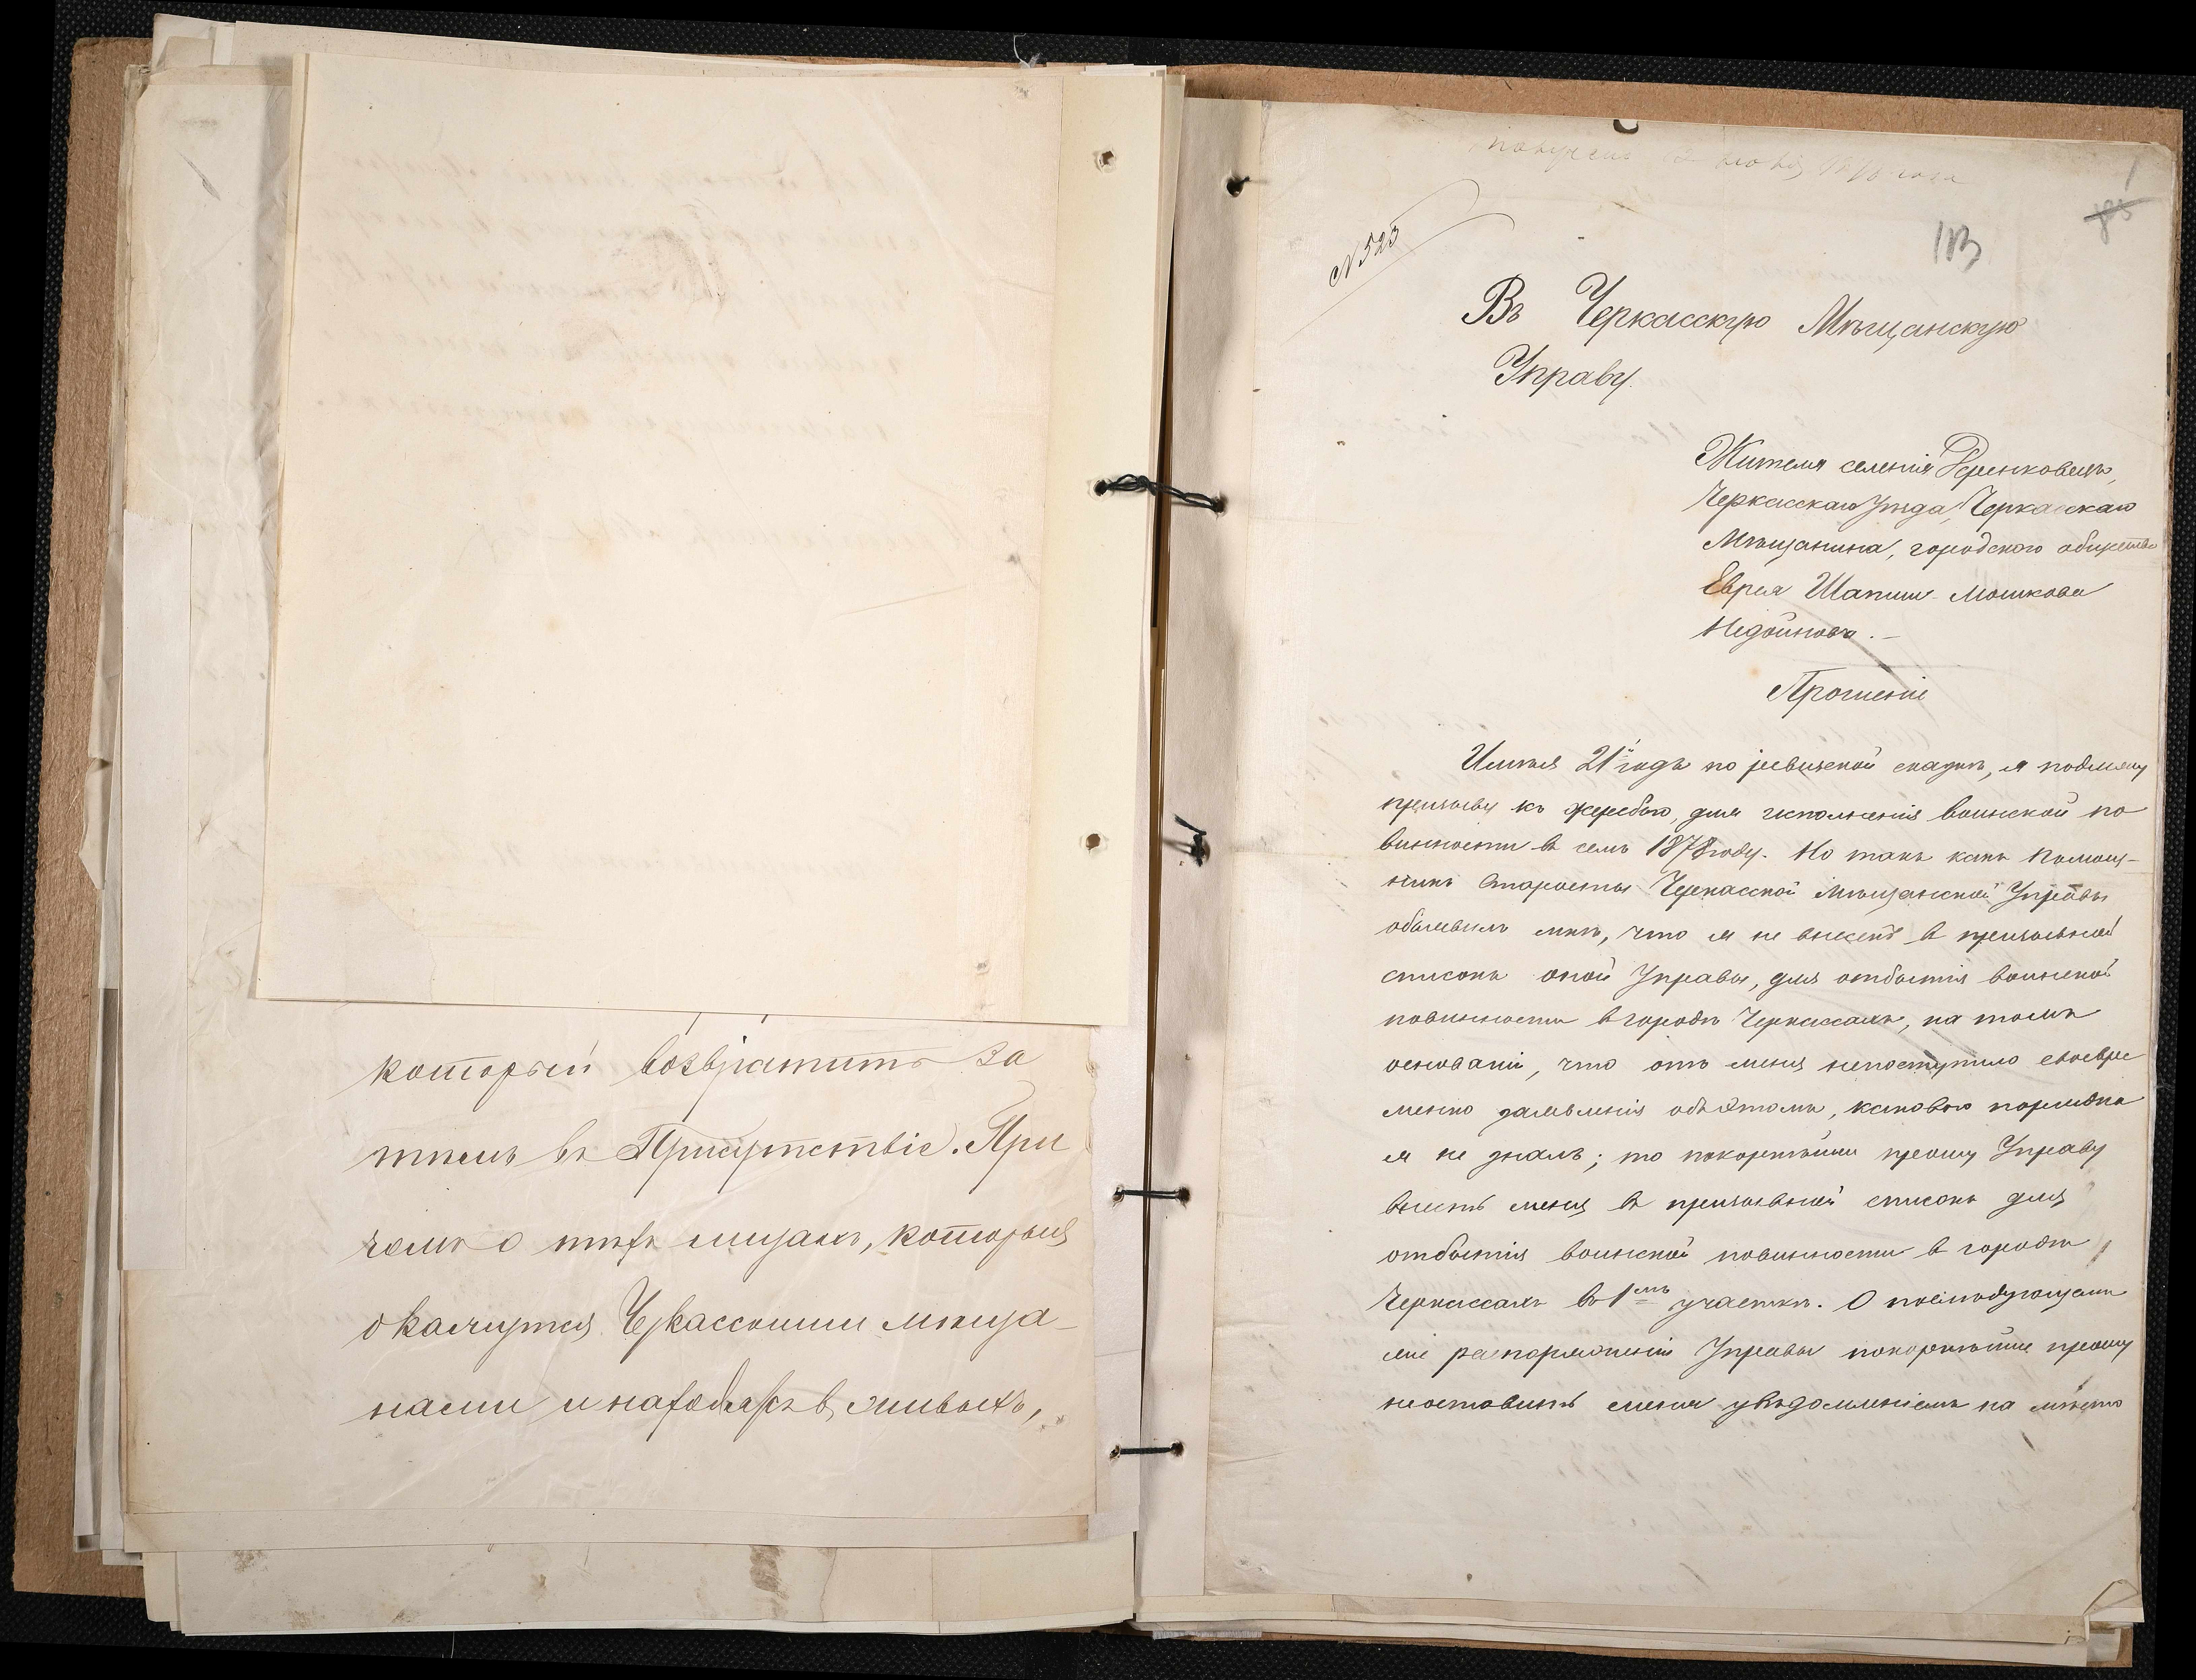 который возвратить за
тѣмъ въ Присутствіе. При
чемъ о тѣхъ лицахъ, которыя
окажутся Черкасскими мѣща-
нами и находясь в живыхъ,
получено
№ 523
113
Въ Черкасскую Мѣщанскую
Управу.
Жителя селенія
Черкасскаго Уѣзда, Черкасскаго
Мѣщанина, городского общества
Еврея Шапши Мошкова
Недойнова.-
Прошеніе
Имѣя 21 годъ по ревизской сказкѣ, я подлежу
призыву къ жеребью, для исполненія воинской по
винности в семъ 1878 году. Но такъ какъ Помощ-
никъ Старосты Черкасской Мѣщанской Управы
объявилъ мнѣ, что я не внесенъ в призывной
списокъ оной Управы, для отбытія воинской
повинности в городѣ Черкассахъ, на томъ
основаніи, что отъ меня непоступило своевре
менно заявленія объ этомъ, каковаго порядка
я не зналъ; то покорнѣйше прошу Управу
внесть меня в призывной списокъ для
отбытія воинской повинности в городѣ
Черкассахъ въ 1мъ участкѣ. О послѣдующемъ
же распоряженіи Управы покорнѣйше прошу
неоставить меня увѣдомленіемъ на мѣсто